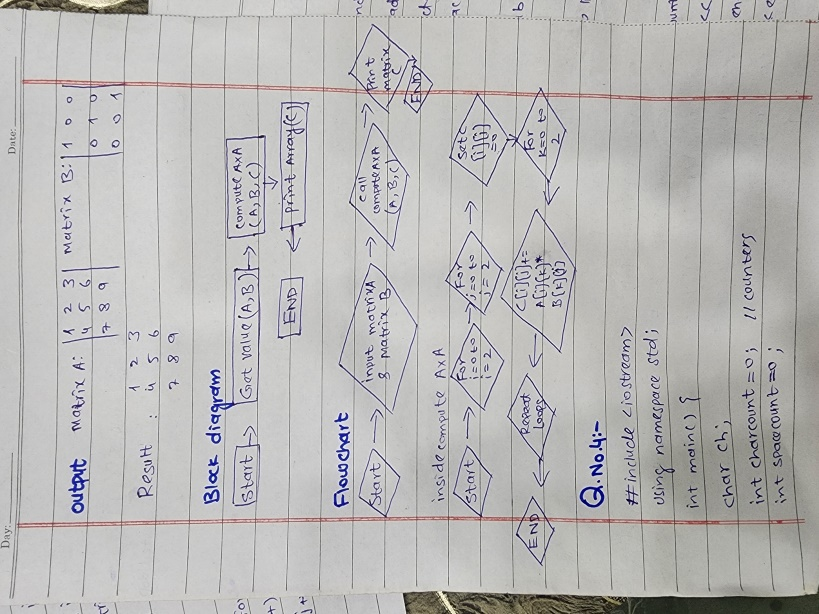 Day:
Date:
output Matrix A: | 1 2 3 | Matrix B: | 1 0 0 |
4 5 6 0 1 0
7 8 9 0 0 1
Result : 1 2 3
4 5 6
7 8 9
Block diagram
Start → Get value (A, B) → compute AxA (A, B, C)
↓
END ← print Array(C)
Flowchart
Start → input matrix A & Matrix B → call compute AxA (A, B, C) → Print matrix C
END
inside compute AxA
Start → For i=0 to i=2 → For j=0 to j=2 → Set C [i][j] =0
↓
END ← Repeat Loops ← C[i][j]+= A[i][k]* B[k][j] ← For k=0 to 2
Q.No.4:-
#include <iostream>
using namespace std;
int main() {
char ch;
int charcount=0; // counters
int spacecount=0;